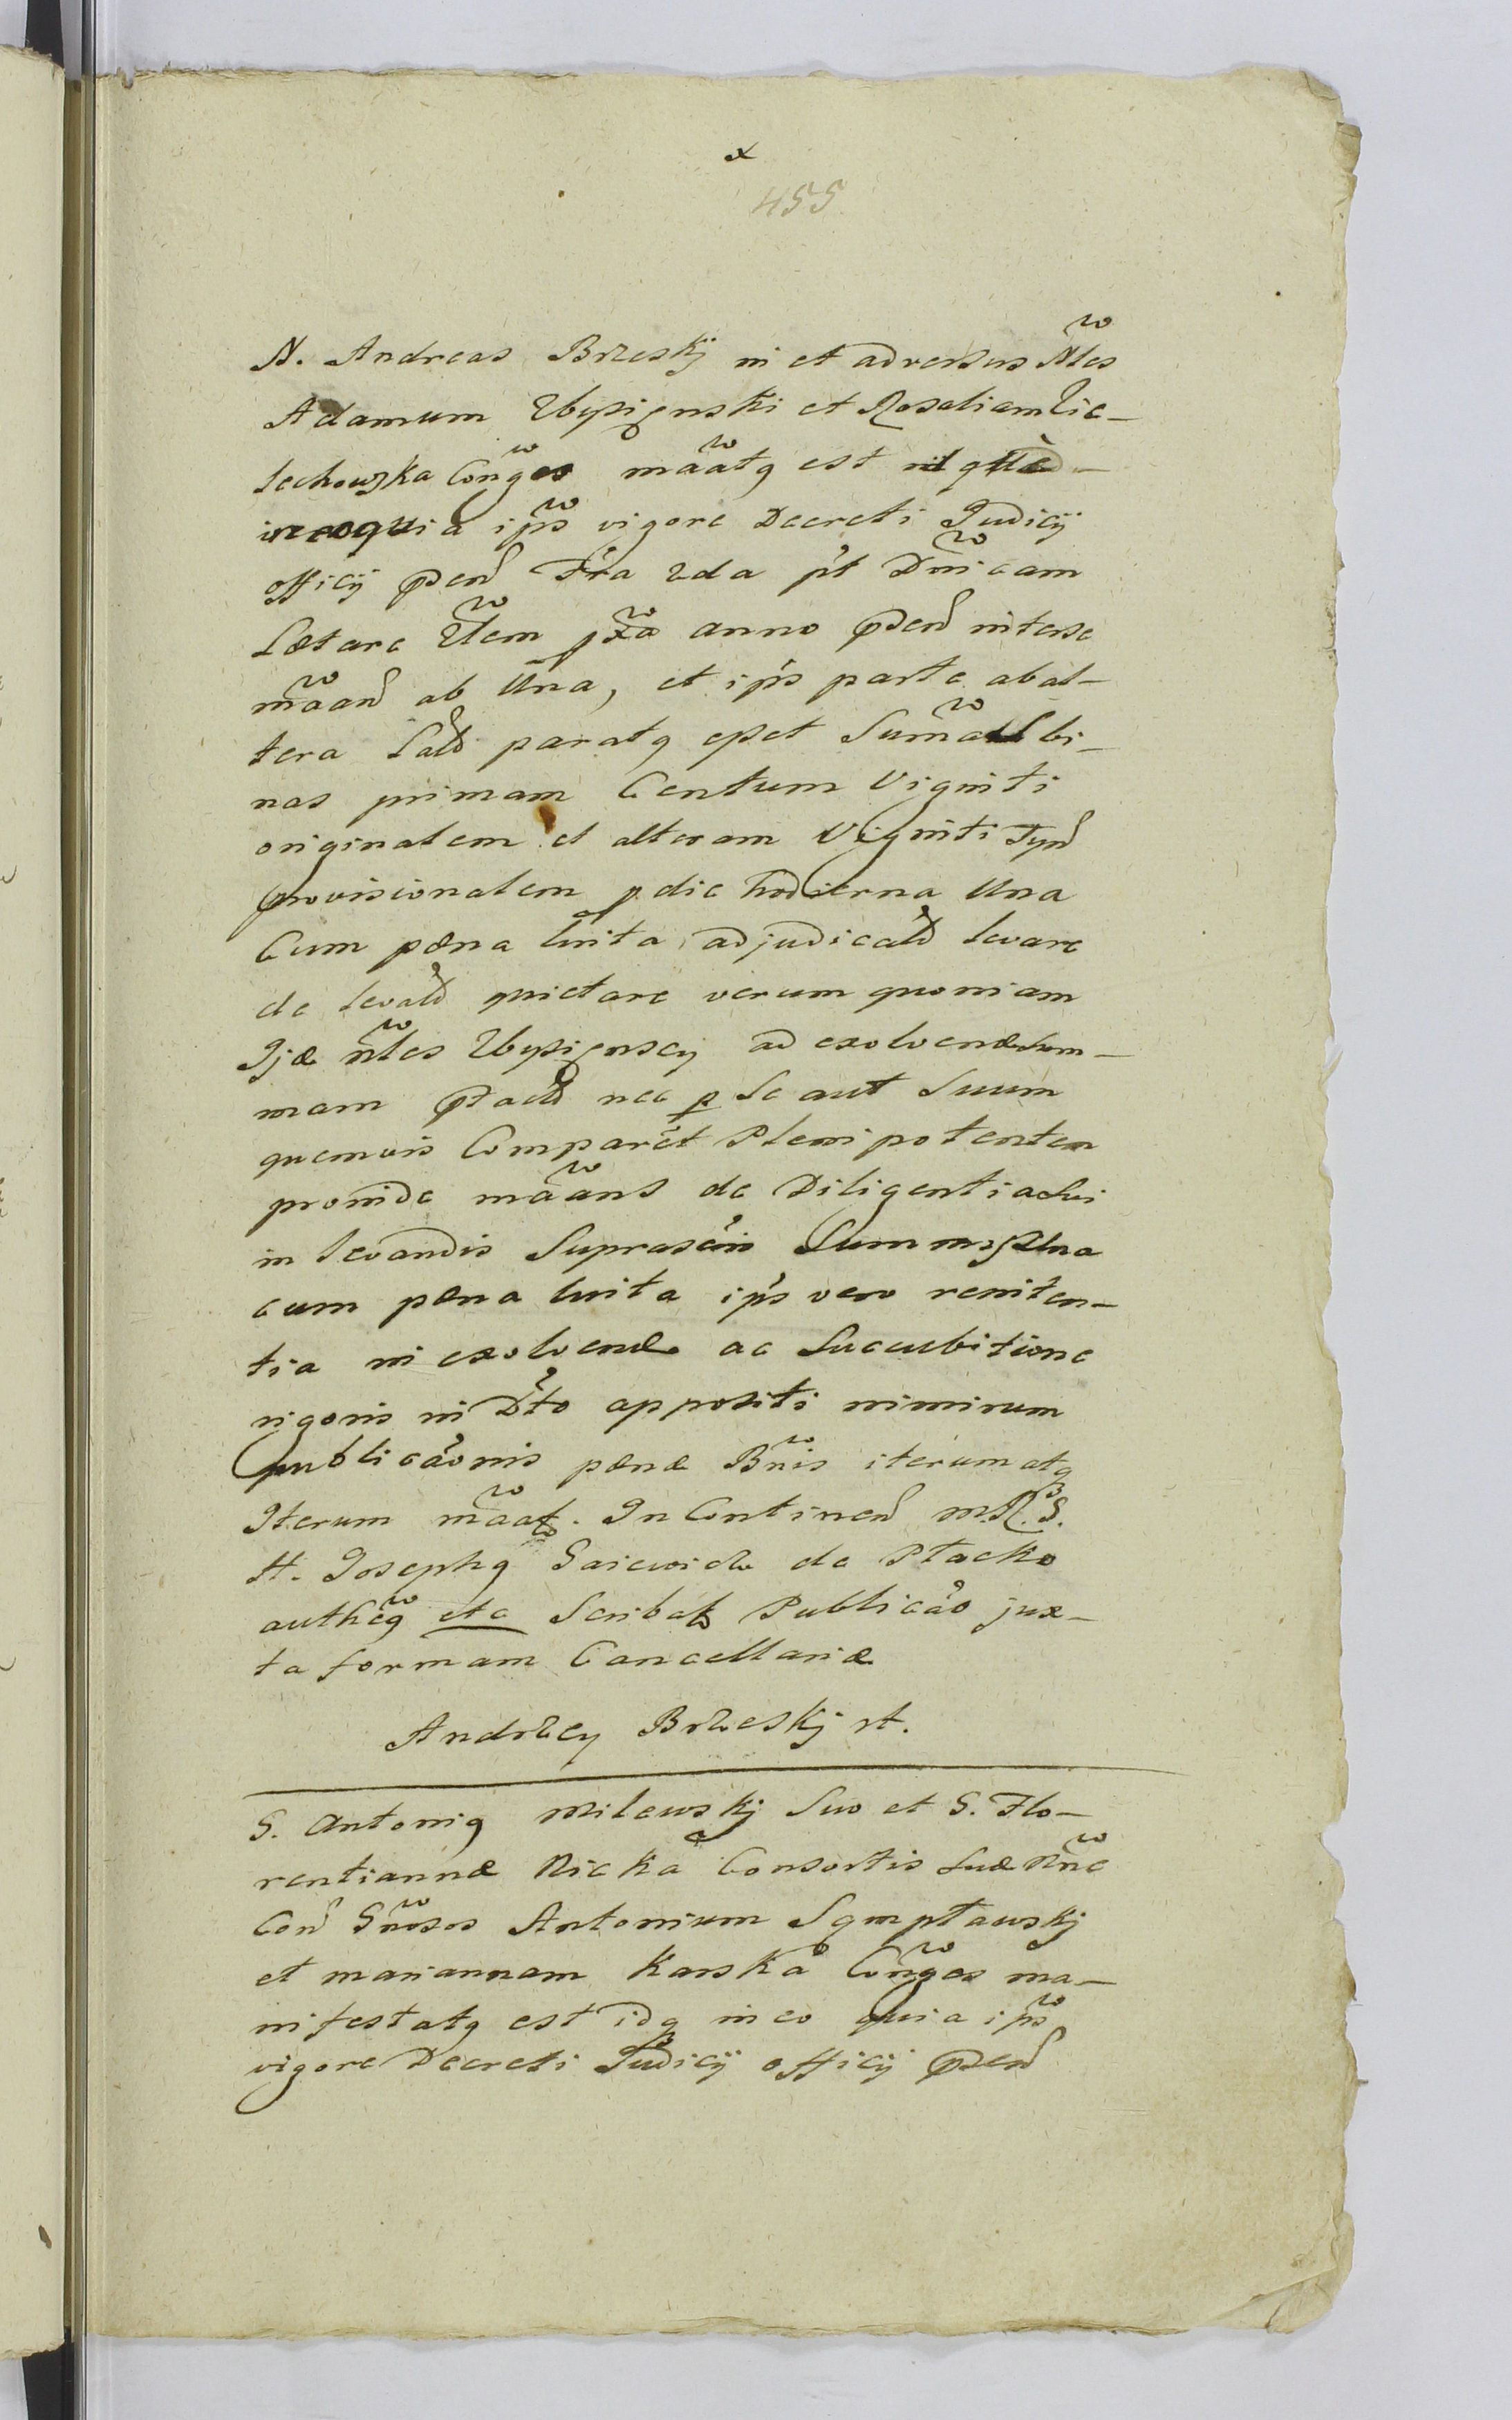 x
455
N. Andreas Brzeskij in et adversus Nles
Adamum Zbysięnski et Rosaliam Cie-
lechowska Conges māatq est
ineoquia ips vigore Decreti Judicij
officij pnd Fra 2da pt Dnicam
Lætare Qlem pxa anno pnd interse
māand ab Una, et ips parte abal-
tera latd paratq esset Summas bi-
nas primam Centum Viginti
originalem et alteram Viginti Tynd
provisionalem p die hodierna Una
Cum pæna luita adjudicatd levare
de levatd quietare verum quoniam
Ijæ nles Zbysięnscy ad exolvendæ sum-
mam ptactd nec p Se aut Suum
quemvis Comparet Plenipotentem
proinde māans de Diligentia Sui
in levandis Suprascis Summis Una
cum pæna luita ips vero reniten-
tia in exolvend ac Sucubitione
rigoris in Dto appositi nimirum
publicaonis pænæ Bnis iterum atq
Iterum māat. In Continend M.R.S.
H. Josephq Gaiewicz de Ptacko
autheq etc Scribat Publicao jux-
ta formam Cancellariæ
Andrzey Brzeskij st.
G. Antoniq Milewskj Suo et G. Flo-
rentiannæ Nicka Consortis Suæ Nne
Cond Gnosos Antonium Sęmpławskj
et mariannam Karska Conges ma-
nifestatq est idq ineo quia ips
vigore Decreti Judicij officij pnd